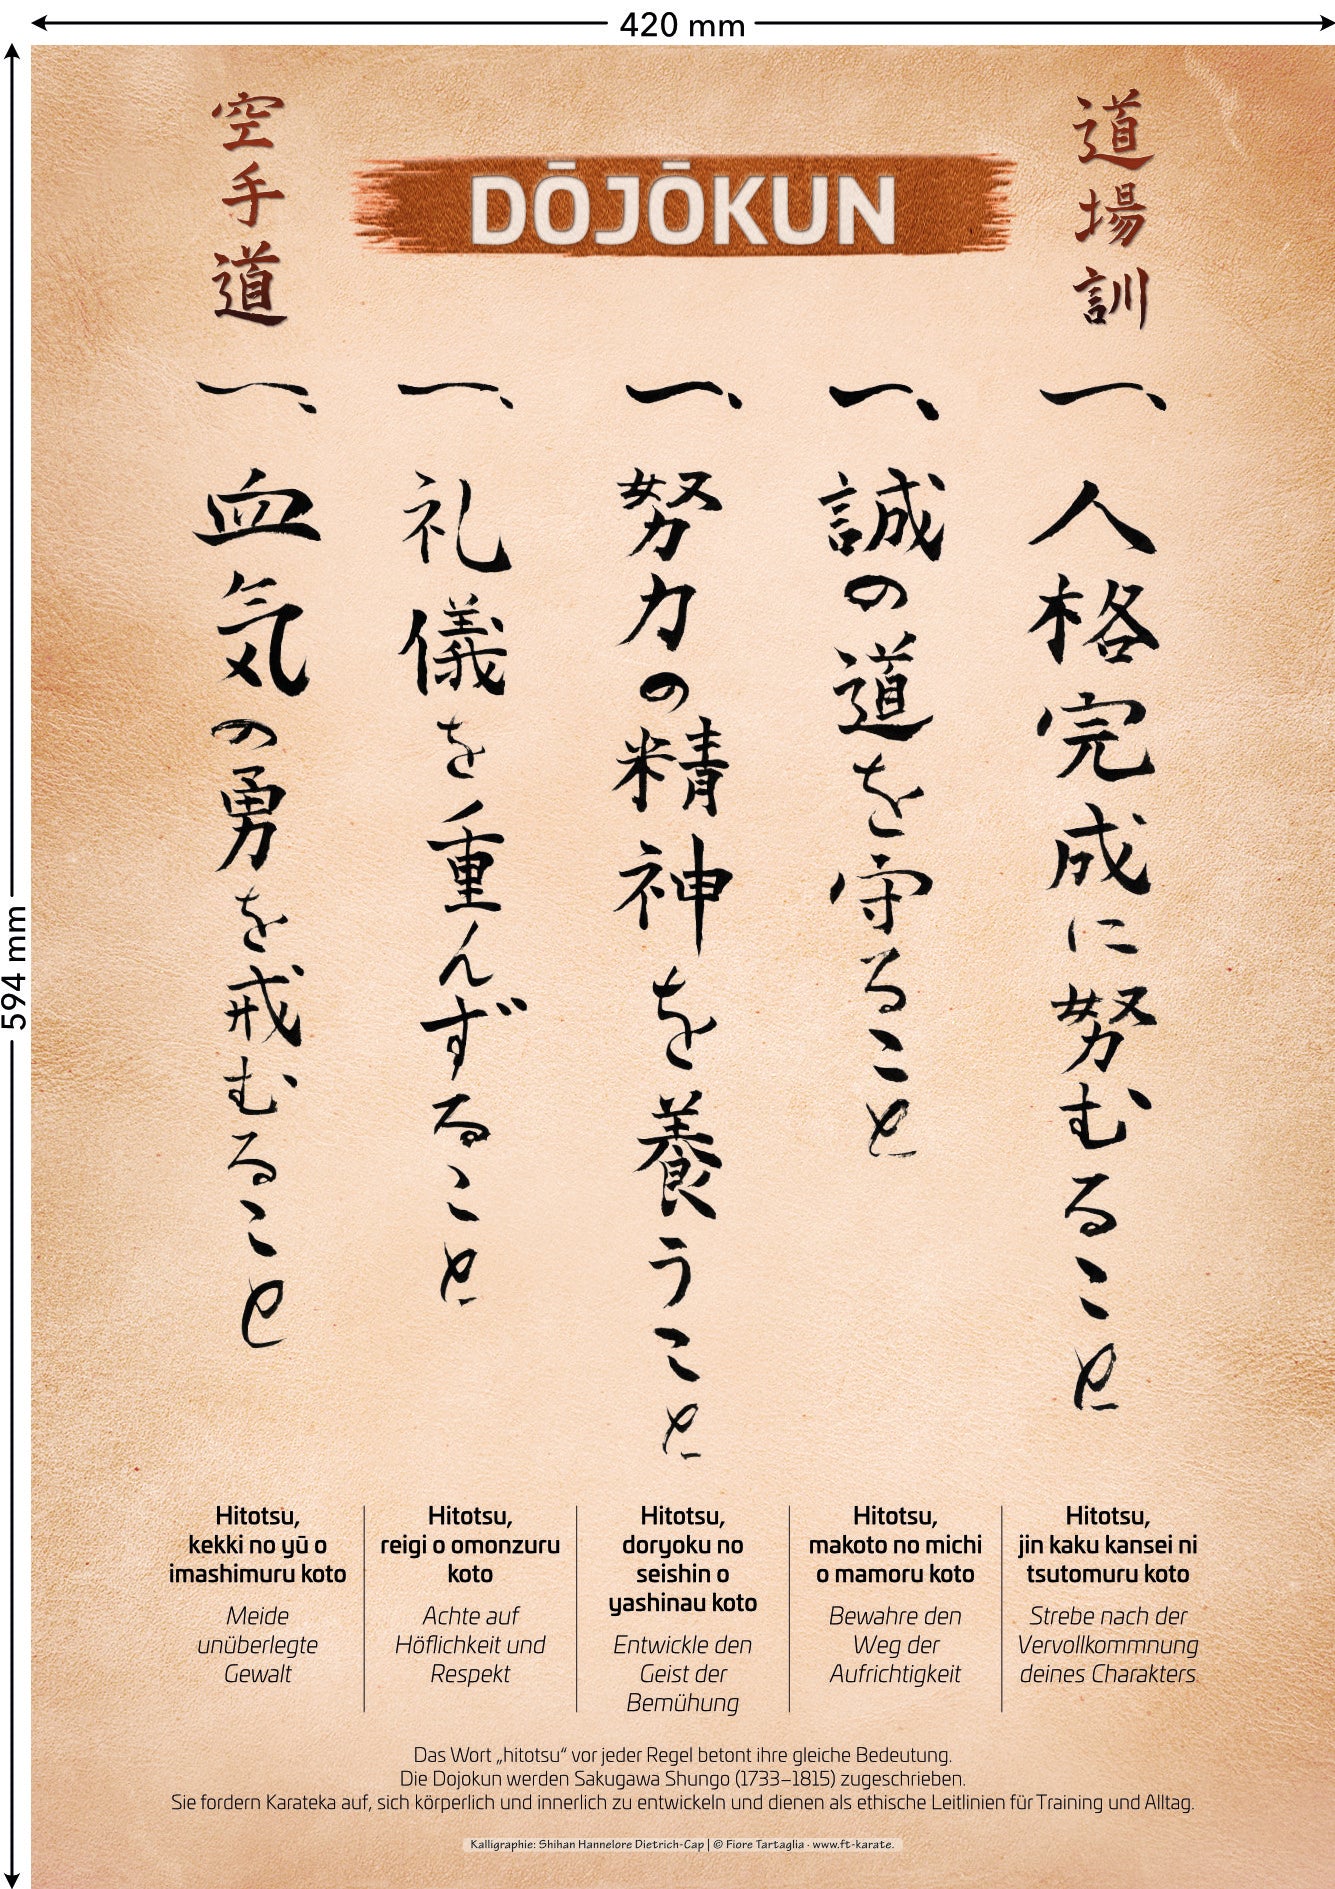 420 mm
594 mm
道場訓
DŌJŌKUN
空手道
一、人格完成に努むること
一、誠の道を守ること
一、努力の精神を養うこと
一、礼儀を重んずること
一、血気の勇を戒むること
Hitotsu,
kekki no yū o
imashimuru koto
Meide
unüberlegte
Gewalt
Hitotsu,
reigi o omonzuru
koto
Achte auf
Höflichkeit und
Respekt
Hitotsu,
doryoku no
seishin o
yashinau koto
Entwickle den
Geist der
Bemühung
Hitotsu,
makoto no michi
o mamoru koto
Bewahre den
Weg der
Aufrichtigkeit
Hitotsu,
jin kaku kansei ni
tsutomuru koto
Strebe nach der
Vervollkommnung
deines Charakters
Das Wort „hitotsu“ vor jeder Regel betont ihre gleiche Bedeutung.
Die Dojokun werden Sakugawa Shungo (1733–1815) zugeschrieben.
Sie fordern Karateka auf, sich körperlich und innerlich zu entwickeln und dienen als ethische Leitlinien für Training und Alltag.
Kalligraphie: Shihan Hannelore Dietrich-Cap | © Fiore Tartaglia · www.ft-karate.